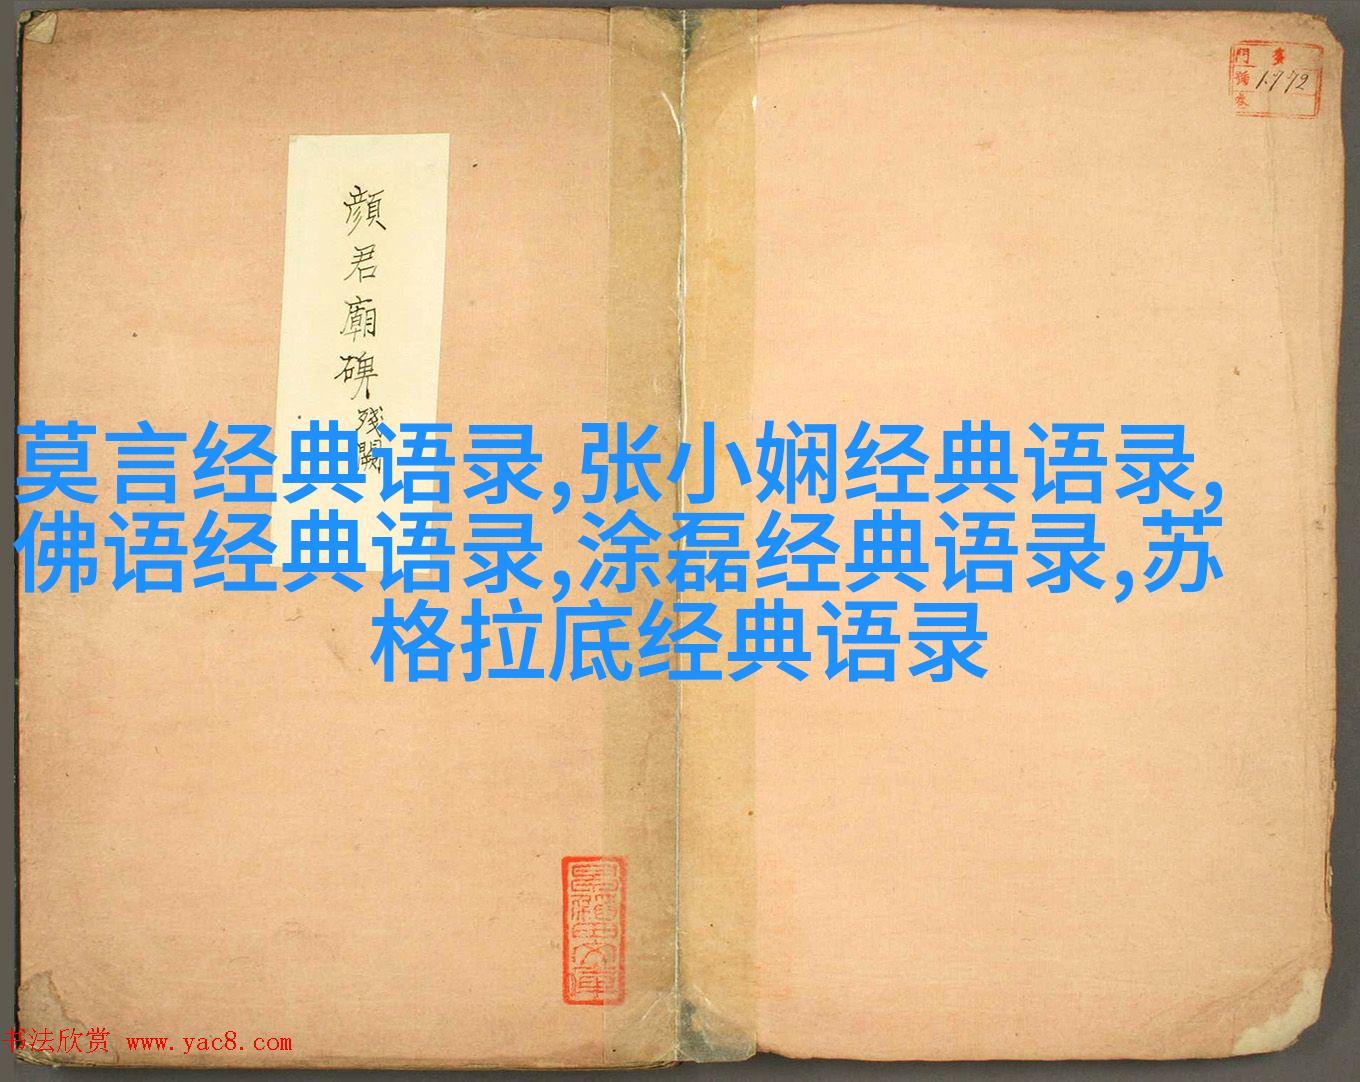 顔君廟碑殘闕
1772
莫言经典语录,张小娴经典语录,
佛语经典语录,涂磊经典语录,苏
格拉底经典语录
书法欣赏 www.yac8.com